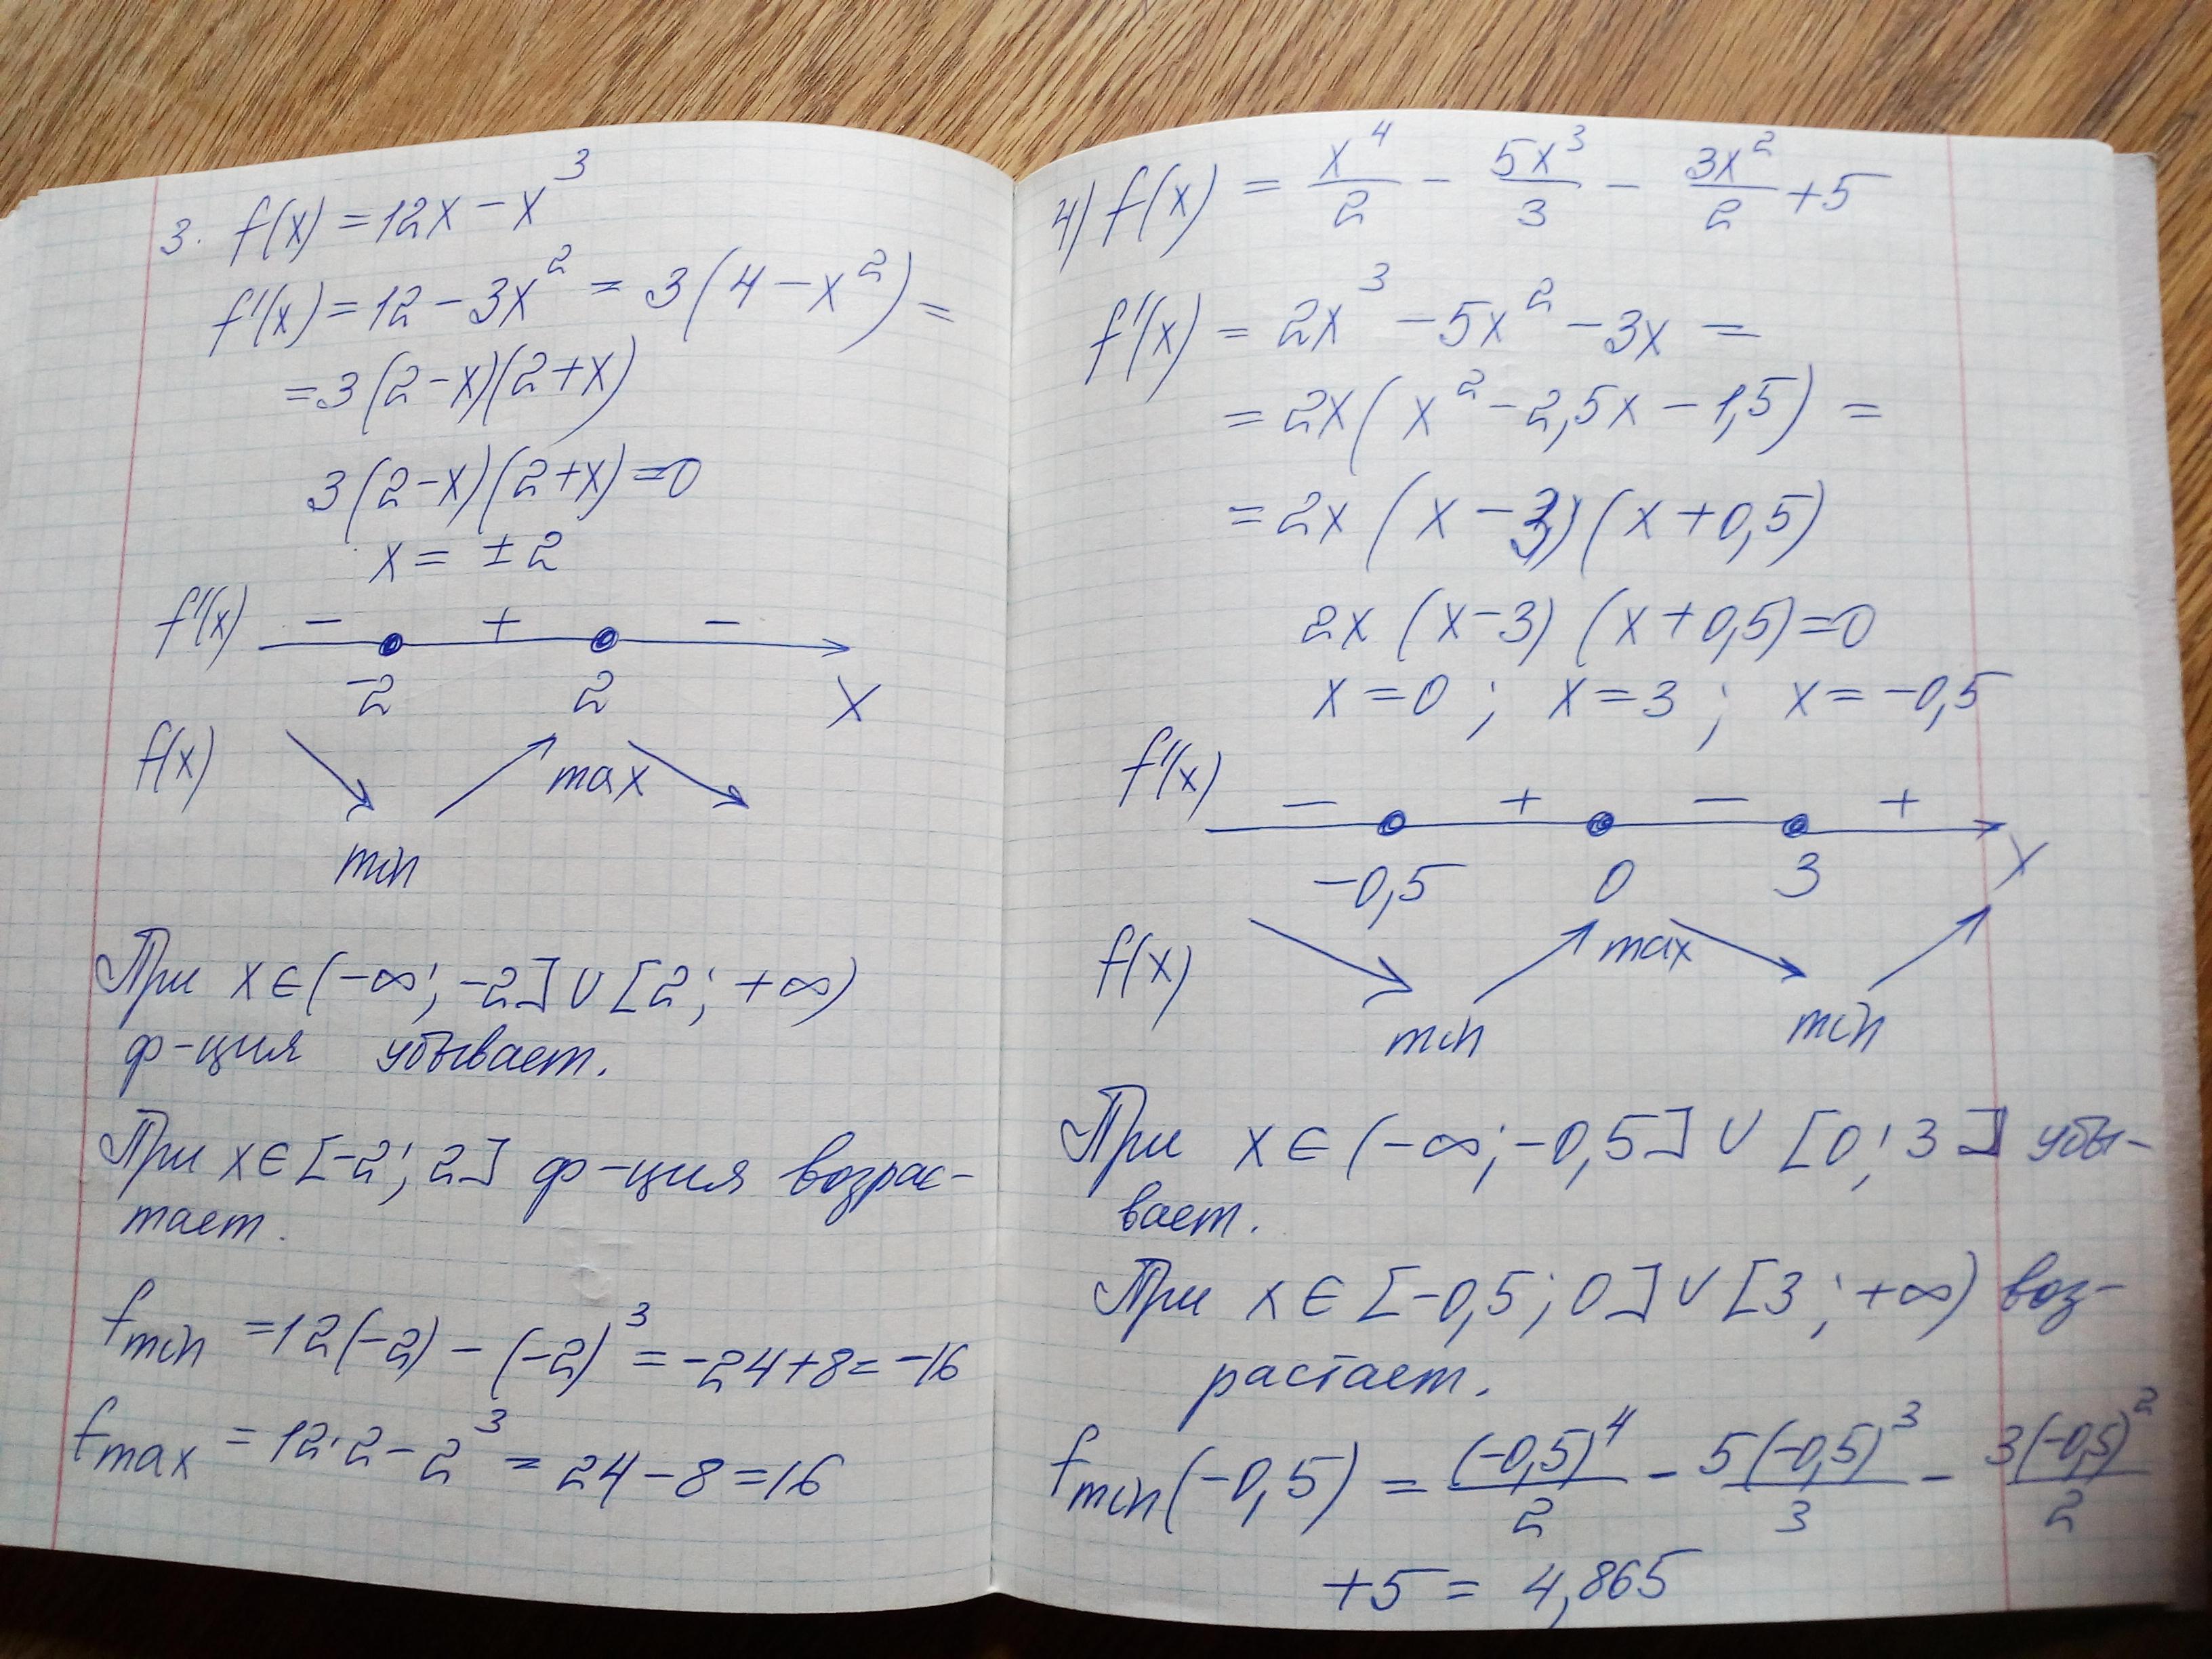 3. f(x) = 12x - x³
f'(x) = 12 - 3x² = 3(4 - x²) =
= 3(2-x)(2+x)
3(2-x)(2+x) = 0
x = ±2
f'(x) - + -
-2 2 x
f(x) max
min
При x ∈ (-∞; -2] ∪ [2; +∞)
ф-ция убывает.
При x ∈ [-2; 2] ф-ция возрас-
тает.
fmin = 12(-2) - (-2)³ = -24 + 8 = -16
fmax = 12·2 - 2³ = 24 - 8 = 16
4) f(x) = x⁴/2 - 5x³/3 - 3x²/2 + 5
f'(x) = 2x³ - 5x² - 3x =
= 2x(x² - 2,5x - 1,5) =
= 2x(x - 3)(x + 0,5)
2x(x-3)(x+0,5) = 0
x = 0; x = 3; x = -0,5
f'(x) - + - +
-0,5 0 3 x
f(x) max
min min
При x ∈ (-∞; -0,5] ∪ [0; 3] убы-
вает.
При x ∈ [-0,5; 0] ∪ [3; +∞) воз-
растает.
fmin(-0,5) = (-0,5)⁴/2 - 5(-0,5)³/3 - 3(-0,5)²/2
+5 = 4,865